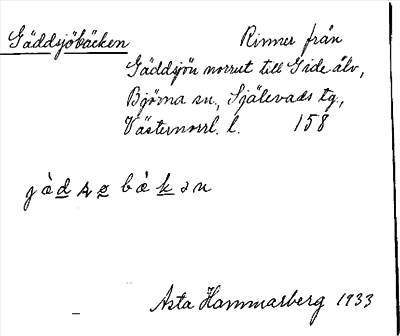 Gäddsjöbäcken Rinner från
Gäddsjön norrut till Gide älv,
Björna sn, Själevads tg.,
Västernorrl. l. 158
Asta Hammarberg 1933